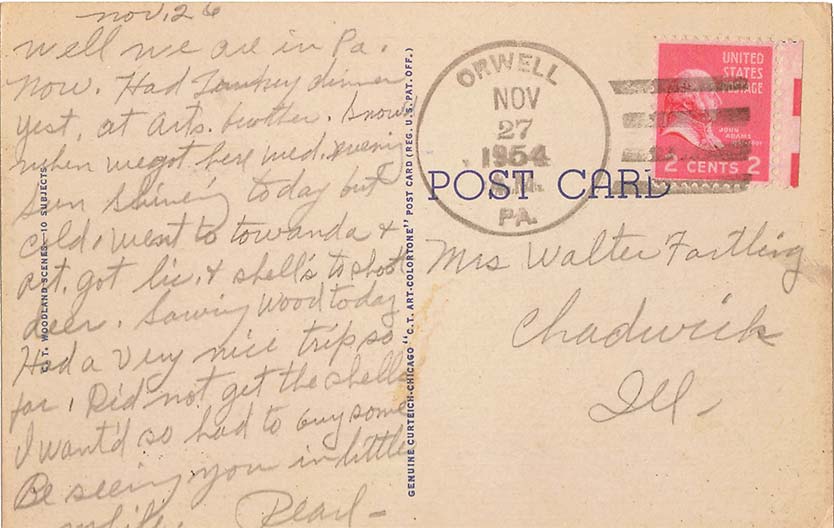 Nov. 26
Well we are in Pa.
Now. Had Turkey dinner
yest, at Arts. brother. Snow
when we got here Wed. evening
Sun shineing today but
cold. went to towanda &
Art. got lic. & shell's to shoot
deer. Sawing wood today
Had a very nice trip so
far. Did not get the shells
I want'd so had to buy some
Be seeing you in little
while. Pearl-
C.T. WOODLAND SCENES—10 SUBJECTS
GENUINE CURTEICH-CHICAGO "C.T. ART-COLORTONE" POST CARD (REG. U.S. PAT. OFF.)
ORWELL
NOV
27
1954
PA.
UNITED
STATES
POSTAGE
JOHN
ADAMS
2 CENTS 2
POST CARD
Mrs Walter Fartling
Chadwick
Ill-